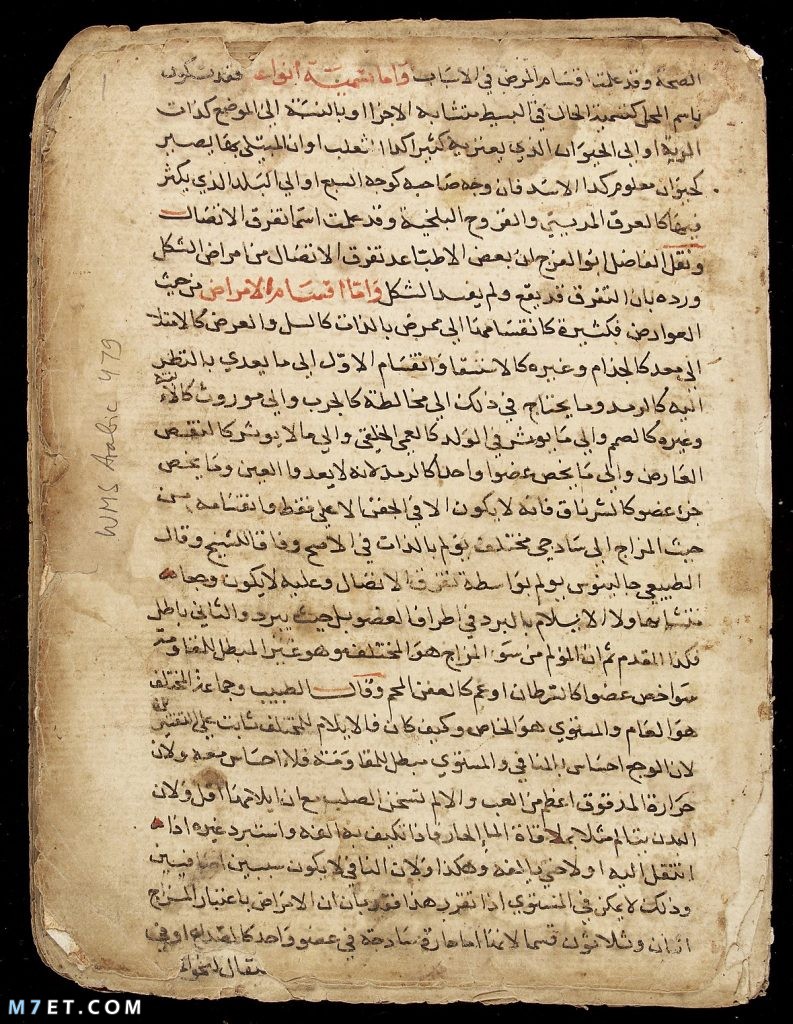 الصحة وقد علمت اقسام المرض في الاسباب واما تسمية انواعه فقد تكون
باسم المحل كتسمية الحال في البسيط متشابه الاجزا او بالنسبة الى الموضع كذات
الرية او الى الحيوان الذي يعتريه كثيرا كداء الثعلب او ان المبتلى بها يصير
كحيوان معلوم كداء الاسد فان وجه صاحبه كوجه السبع او الى البلد الذي يكثر
فيها كالعرق المديني والقروح البلخية وقد علمت اسما تفرق الاتصال
ونقل الفاضل ابو الفرج ان بعض الاطبا عد تفرق الاتصال من امراض الشكل
ورده بان التفرق قد يقع ولم يفسد الشكل واما اقسام الامراض من حيث
العوارض فكثيرة كانقسامها الى ممرض بالذات كالسل والعرض كالامتلا
الى معد كالجذام وغيره كالاستسقا وانقسام الاول الى ما يعدي بالنظر
اليه كالرمد وما يحتاج في ذلك الى مخالطة كالجرب والى موروث
وغيره كالصمم والى ما يوثر في الولد كالعمى الخلقي والى ما لا يوثر كالنقص
العارض والى ما يخص عضوا واحدا كالرمد لانه لا يعدوا العين وما يخص
جزء عضو كالشرناق فانه لا يكون الا في الجفن الاعلى فقط وانقسامه من
حيث المزاج الى سادجي مختلف يولم بالذات في الاصح وفاقا للشيخ وقال
الطبيعي جالينوس يولم بواسطة تفرق الاتصال وعليه لا يكون وجعا
متشابها ولا الايلام بالبرد في اطراف العضو بل حيث يبرد والثاني باطل
فكذا المقدم ثم ان المولم من سو المزاج هو المختلف وهو غير المبطل للمقاومة
سوا خص عضوا كالسرطان او عم كالعفن الحم وقال الطبيب وجماعة المختلف
هو العام والمستوي هو الخاص وكيف كان فالايلام للمختلف ثابت على
لان الوجع احساس بالمنافي والمستوي مبطل للمقاومة فلا احساس معه ولان
حرارة المدقوق اعظم من الغب والا لم تسخن الصلب مع ان ايلامها اقل ولان
البدن يتالم مثلا بملاقاة الما الحار فاذا تكيف به الفه واستبرد غيره اذا
انتقل اليه اولا حتى يالفه وهكذا ولان النافي لا يكون سببين
وذلك لا يمكن في المستوي اذا تقرر هذا فقد بان ان الامراض باعتبار المزاج
اثنان وثلاثون قسما لانها اما حارة سادجة في عضو واحد كالصداع او في
WMS Arabic 479
1
M7ET.COM